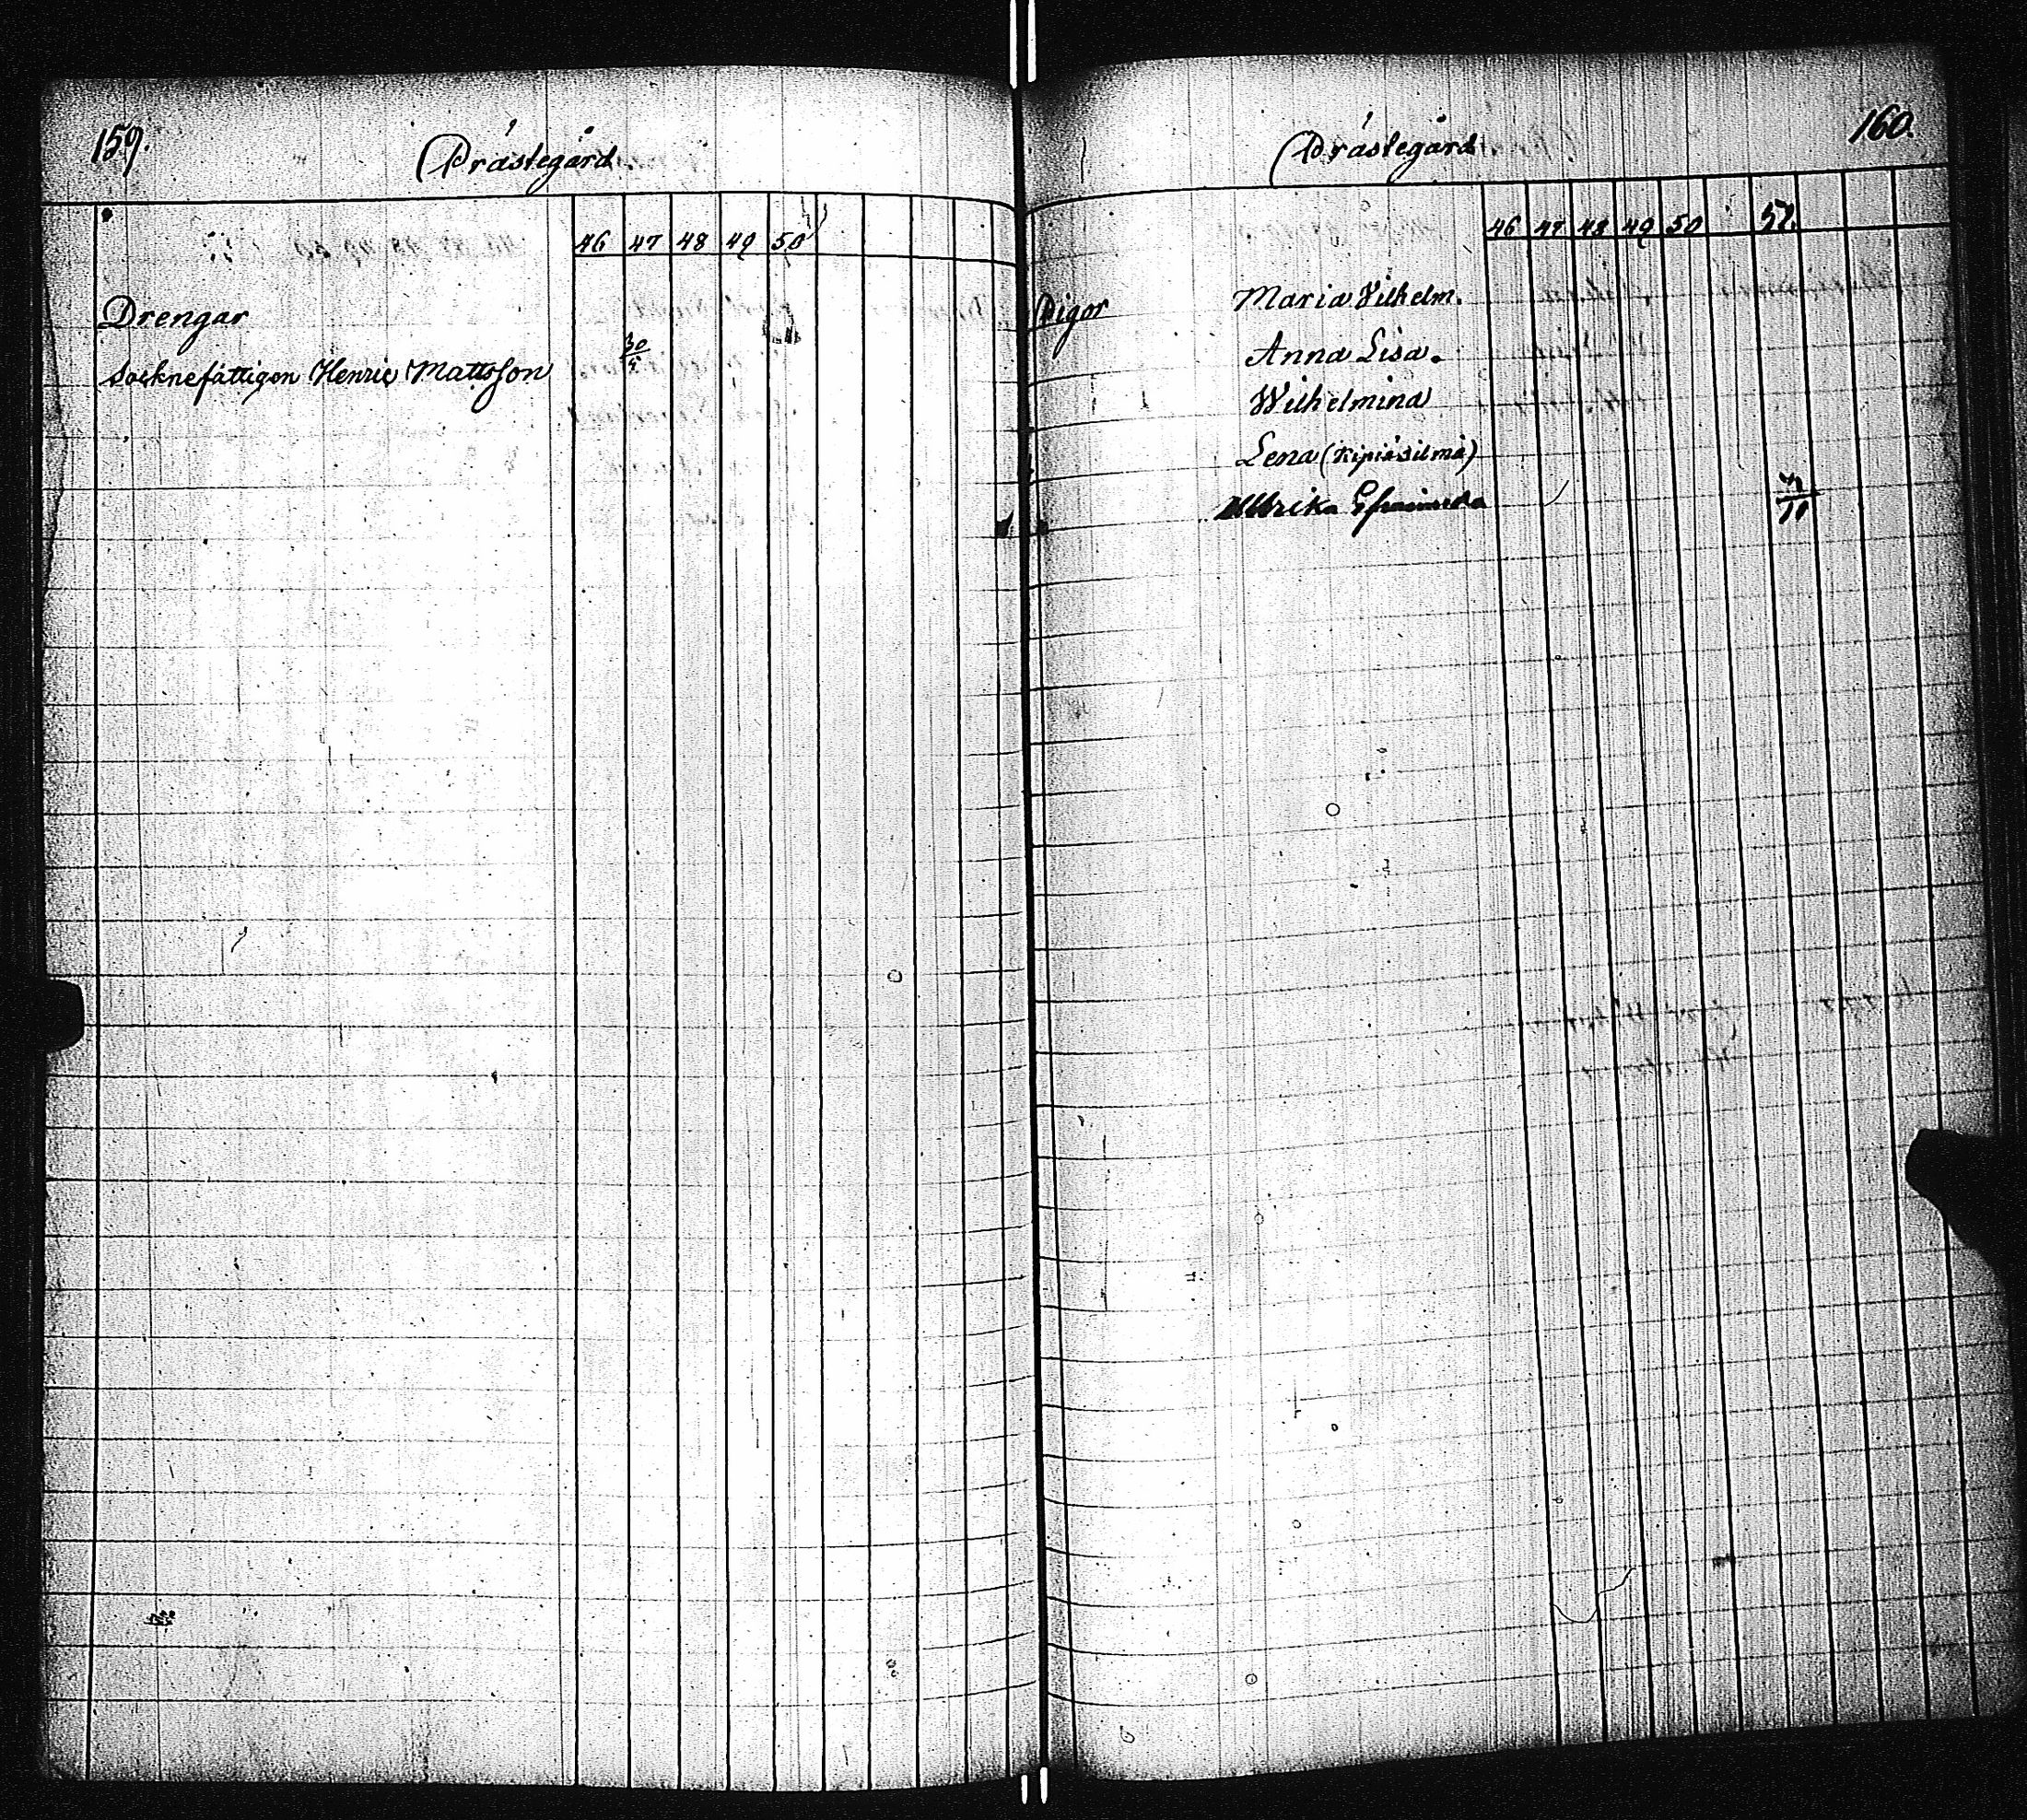 159.
Prästegård.
46 47 48 49 50
Drengar
Socknefattigen Henric Mattsson 30/5
Prästegård
160.
46 47 48 49 50 52.
Pigor Maria Wilhelm.
Anna Lisa.
Wilhelmina
Lena (Kipiäsilmä)
Ullrika Efraimsda